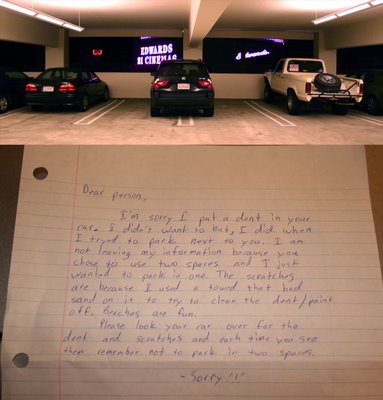 EDWARDS
21 CINEMAS
Dear person,
I'm sorry I put a dent in your
car. I didn't want to but, I did when
I tryed to park next to you. I am
not leaving my information because you
chose to use two spaces and I just
wanted to park in one. The scratches
are because I used a towel that had
sand on it to try to clean the dent/paint
off. Beaches are fun.
Please look your car over for the
dent and scratches and each time you see
them remember not to park in two spaces.
- Sorry